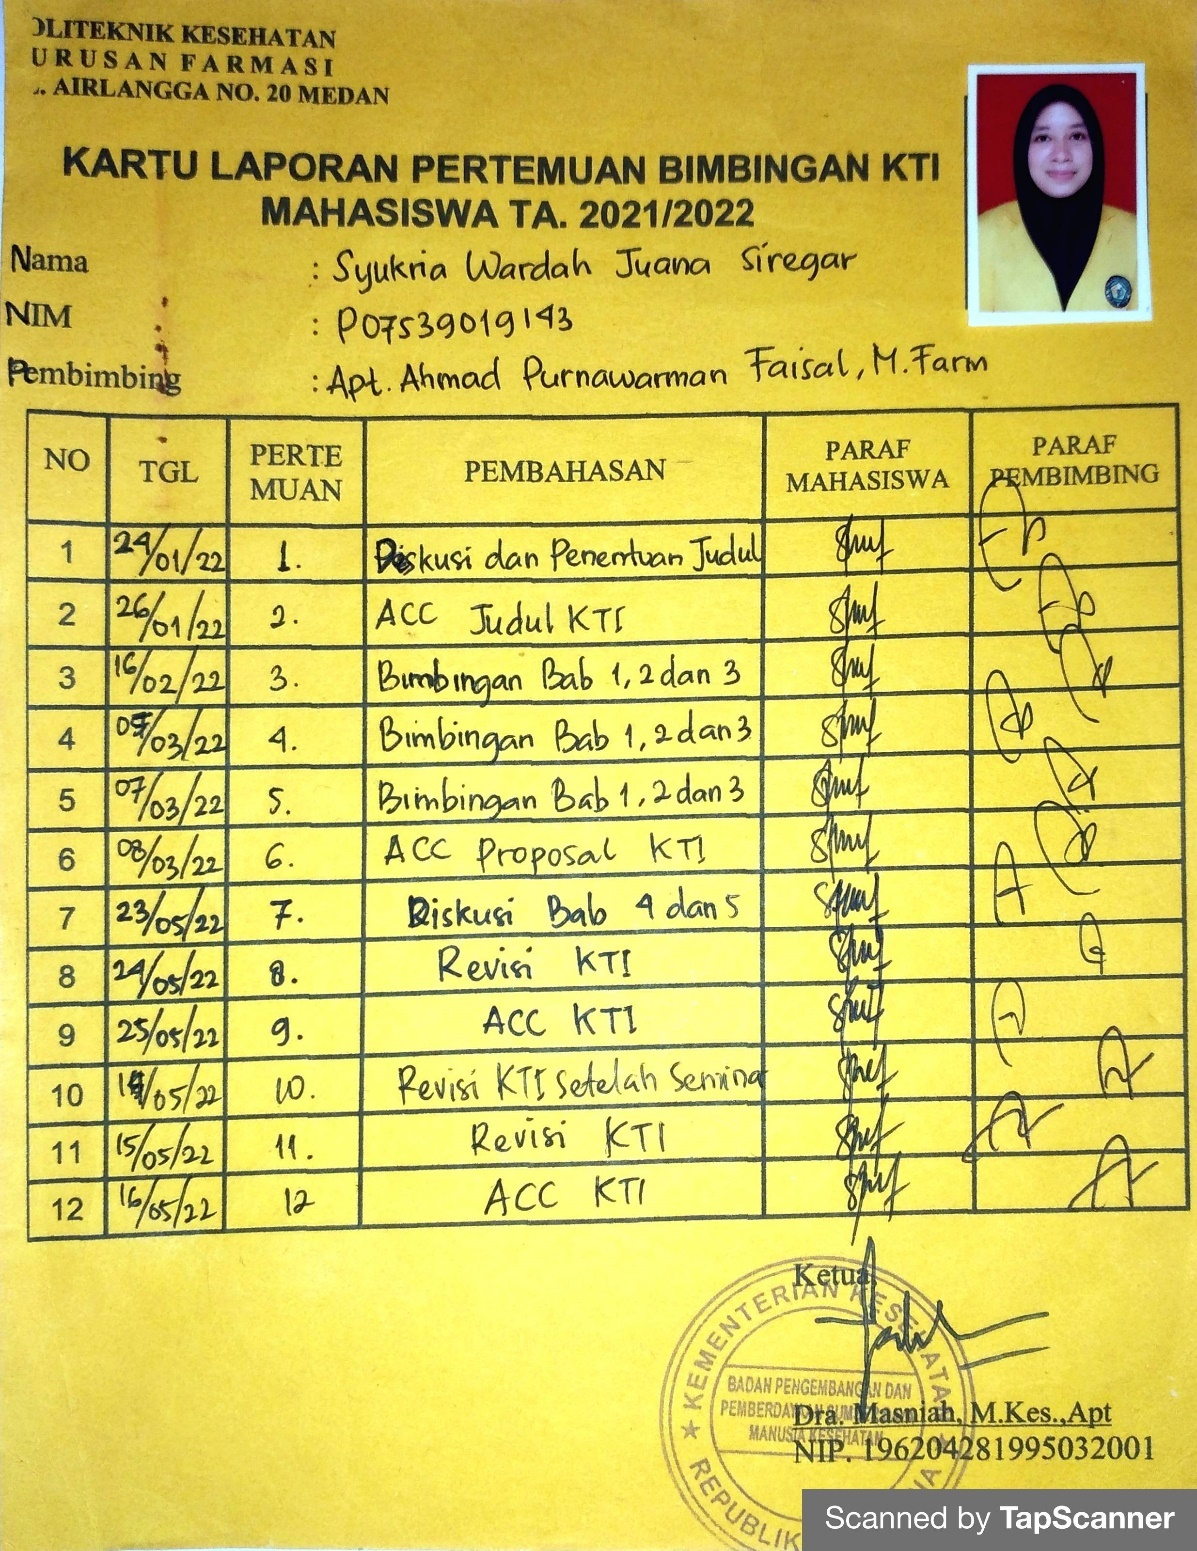 OLITEKNIK KESEHATAN
URUSAN FARMASI
. AIRLANGGA NO. 20 MEDAN
KARTU LAPORAN PERTEMUAN BIMBINGAN KTI
MAHASISWA TA. 2021/2022
Nama : Syukria Wardah Juana Siregar
NIM : P07539019143
Pembimbing : Apt. Ahmad Purnawarman Faisal, M.Farm
NO TGL PERTE MUAN PEMBAHASAN PARAF MAHASISWA PARAF PEMBIMBING
1 24/01/22 1. Diskusi dan Penentuan Judul
2 26/01/22 2. ACC Judul KTI
3 16/02/22 3. Bimbingan Bab 1, 2 dan 3
4 /03/22 4. Bimbingan Bab 1, 2 dan 3
5 07/03/22 5. Bimbingan Bab 1, 2 dan 3
6 08/03/22 6. ACC Proposal KTI
7 23/05/22 7. Diskusi Bab 4 dan 5
8 24/05/22 8. Revisi KTI
9 25/05/22 9. ACC KTI
10 14/05/22 10. Revisi KTI Setelah Semina
11 15/05/22 11. Revisi KTI
12 16/05/22 12 ACC KTI
Ketua,
KEMENTERIAN KESEHATAN
BADAN PENGEMBANGAN DAN
PEMBERDAYAAN SUMBER DAYA
MANUSIA KESEHATAN
REPUBLIK
Dra. Masniah, M.Kes.,Apt
NIP. 196204281995032001
Scanned by TapScanner